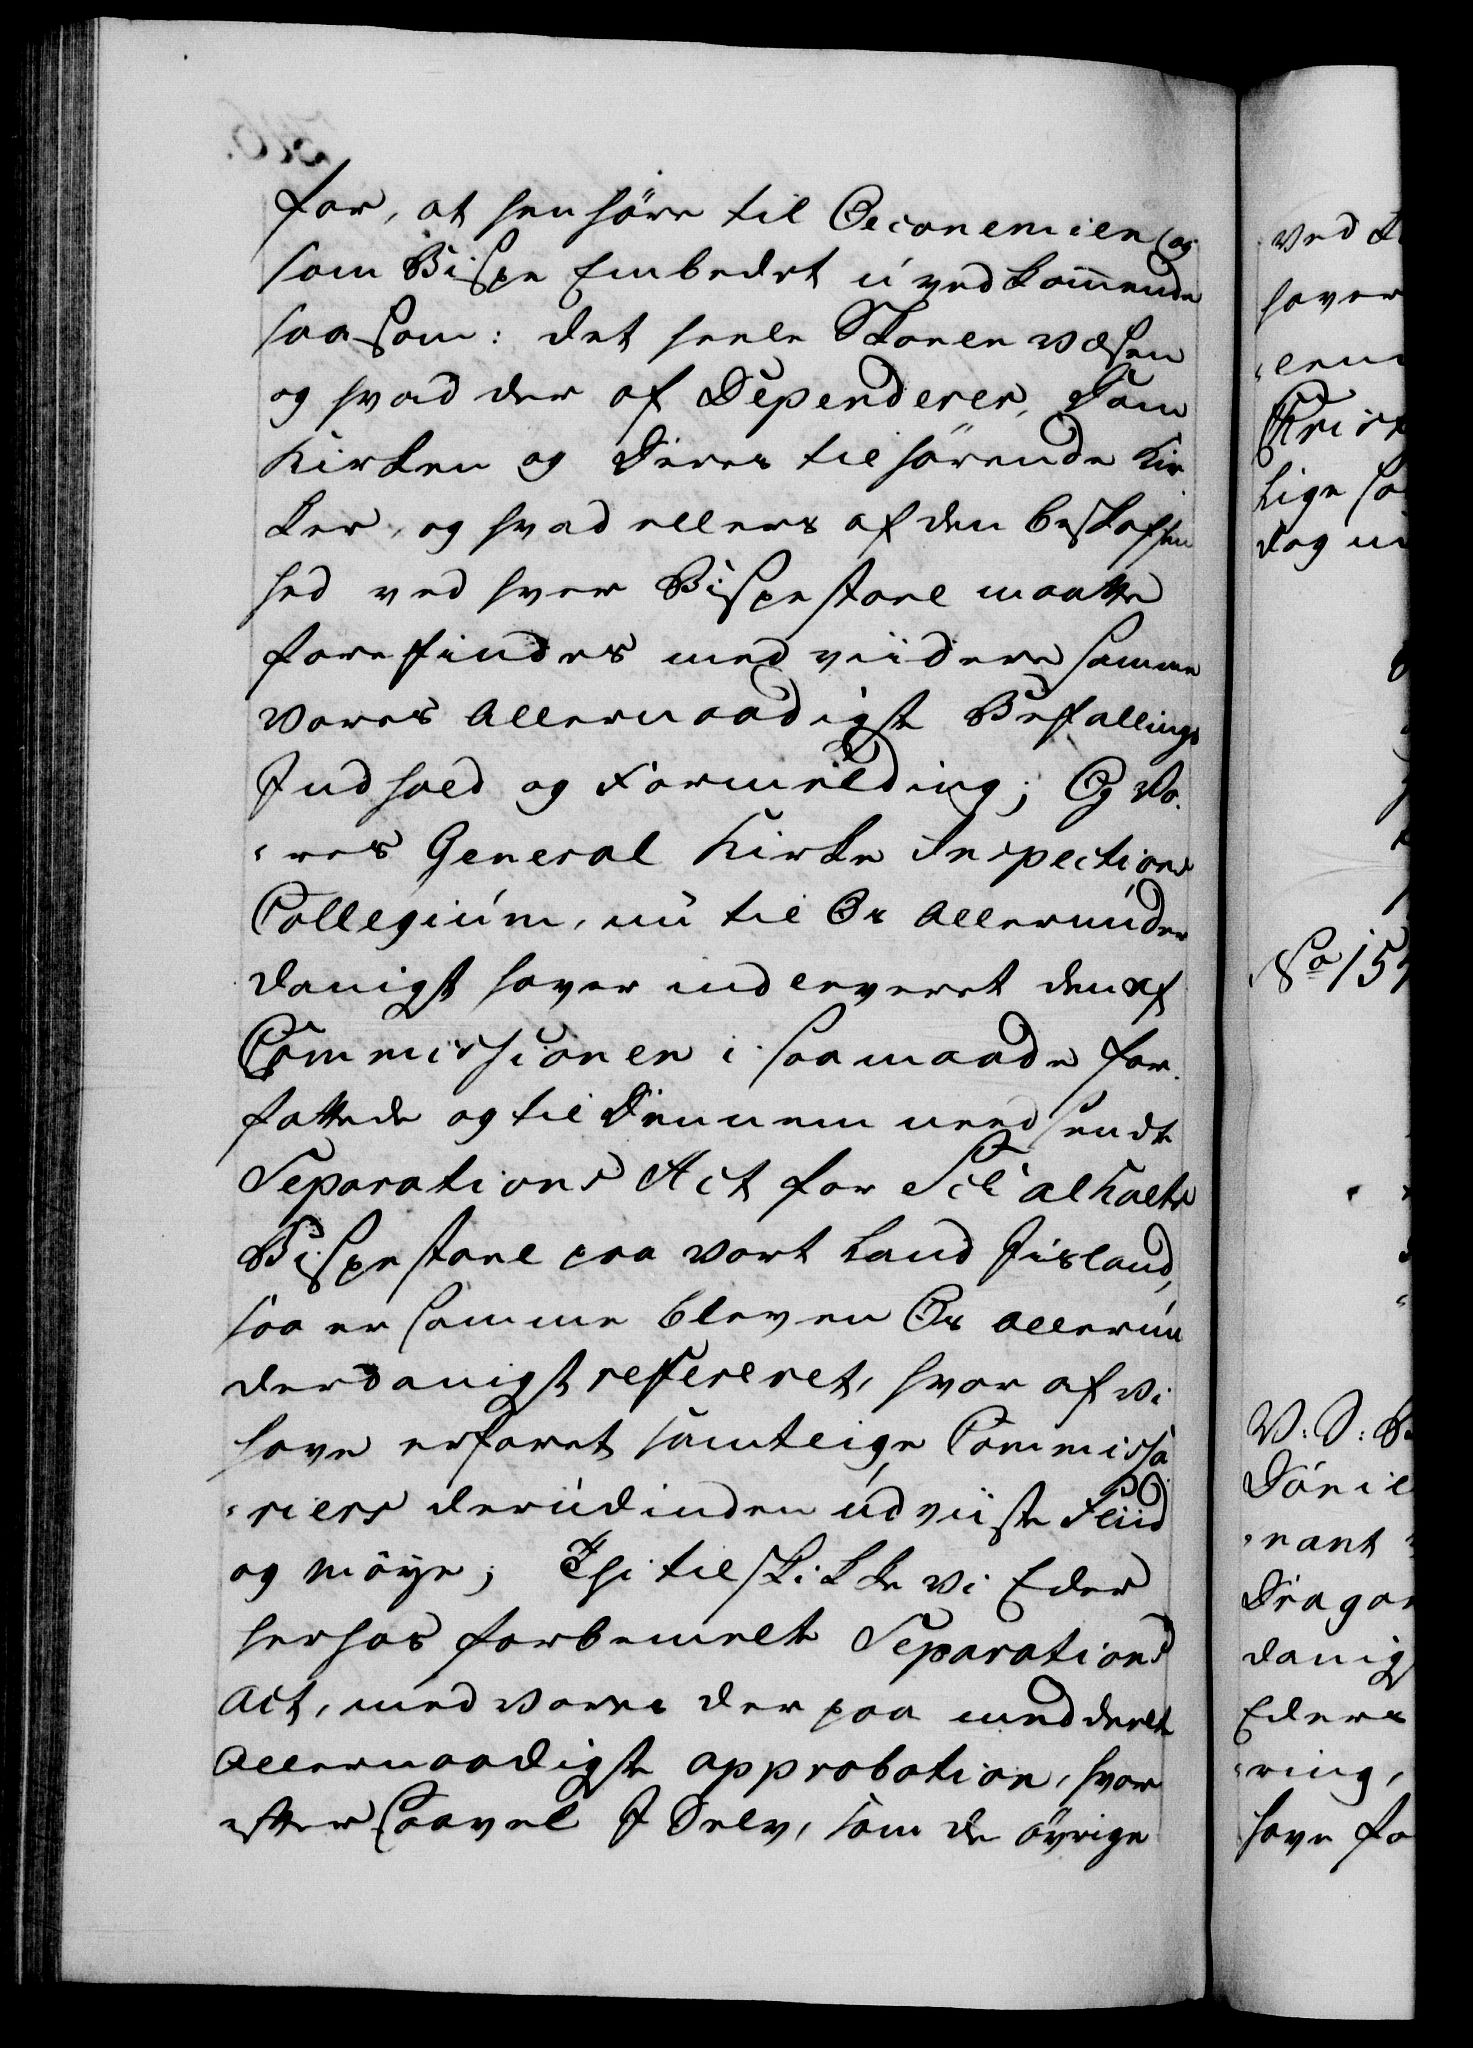 for, at henhöre til Oeconomien og
som Bispe Embedet uvedkom̄ende
saasom: det heele Skoele Væsen
og hvad der af Dependerer, Dom
Kirken og Deres tilhörende Kir
ker, og hvad ellers af den beskaffen
hed ved hver Bispestoel maatte
forefindes med viidere samme
Vores Allernaadigst Befallings
Indhold og Formelding; Og Vo-
res General Kirke Inspections
Collegium, nu til Os Allerunder
danigst haver indleveret den af
Commissionen i saamaade for-
fattede og til Dennem nedsendte
Separations Act for Schalholts
Bispestoel paa Vort Land Iisland,
saa er samme bleven Os Allerun
derdanigst refereret, hvor af Vi
have erfaret samtlige Commissa
riers derudinden udviiste Fliid
og Möye; Thi tilskikke Vi Eder
herhos forbemelte Separations
Act, med Vores der paa meddeelte
Allernaadigste approbation, hvor
efter saavel I Selv, som de övrige
ved
haver
Chris
Lige
dog
No 15
V: S:
Danie
nant
Dragon
danigs
Eders
ring,
have fo